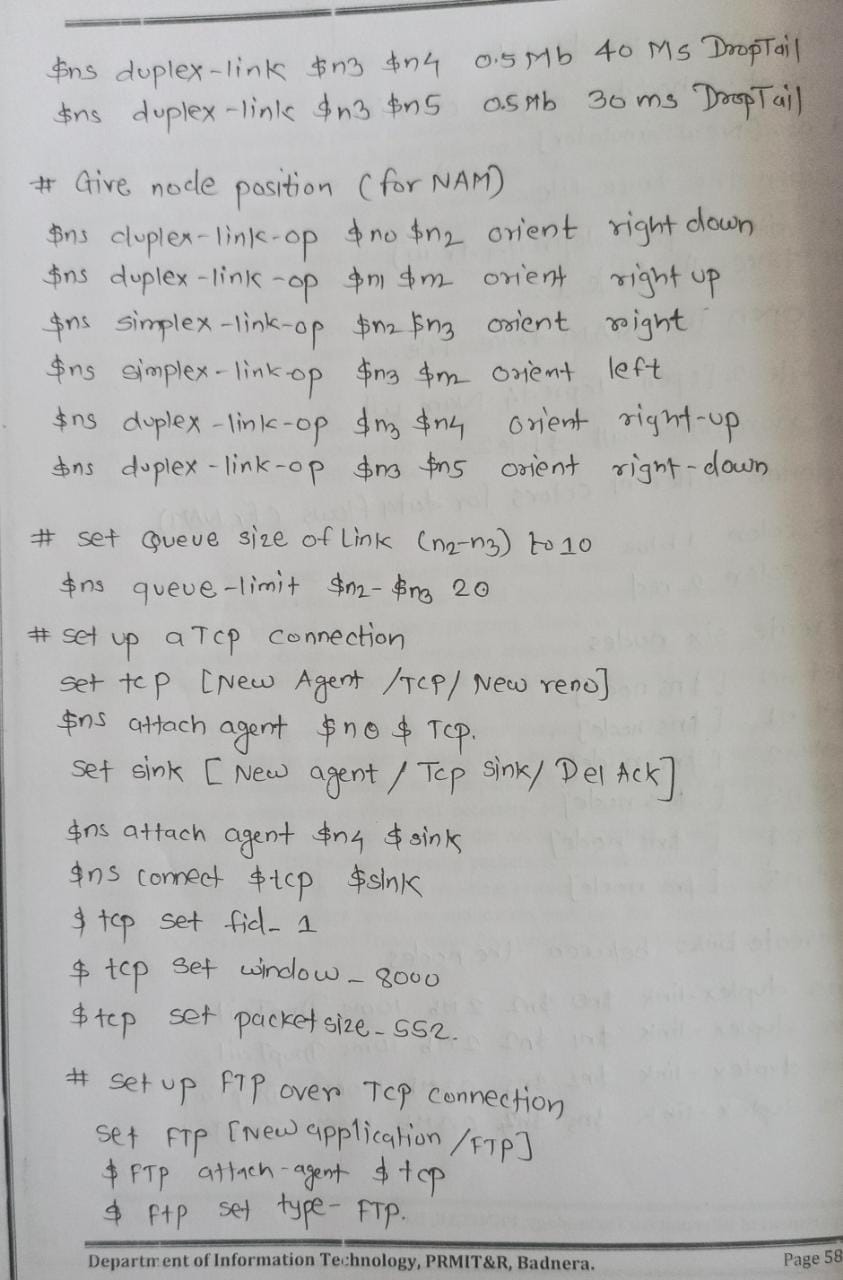 $ns duplex-link $n3 $n4 0.5 Mb 40 Ms DropTail
$ns duplex-link $n3 $n5 0.5 Mb 30 ms DropTail
# Give node position (for NAM)
$ns duplex-link-op $n0 $n2 orient right down
$ns duplex-link-op $n1 $n2 orient right up
$ns simplex-link-op $n2 $n3 orient right
$ns simplex-link-op $n3 $n2 orient left
$ns duplex-link-op $n3 $n4 orient right-up
$ns duplex-link-op $n3 $n5 orient right-down
# set Queue size of Link (n2-n3) to 10
$ns queue-limit $n2-$n3 20
# set up a Tcp connection
set tcp [New Agent /TCP/ New reno]
$ns attach agent $n0 $ Tcp.
Set sink [ New agent / Tcp sink/ Del Ack]
$ns attach agent $n4 $sink
$ns connect $tcp $sink
$ tcp set fid_ 1
$ tcp set window_ 8000
$tcp set packet size_ 552.
# set up FTP over Tcp connection
set FTP [New application /FTP]
$ FTP attach-agent $tcp
$ ftp set type- FTP.
Department of Information Technology, PRMIT&R, Badnera.
Page 58